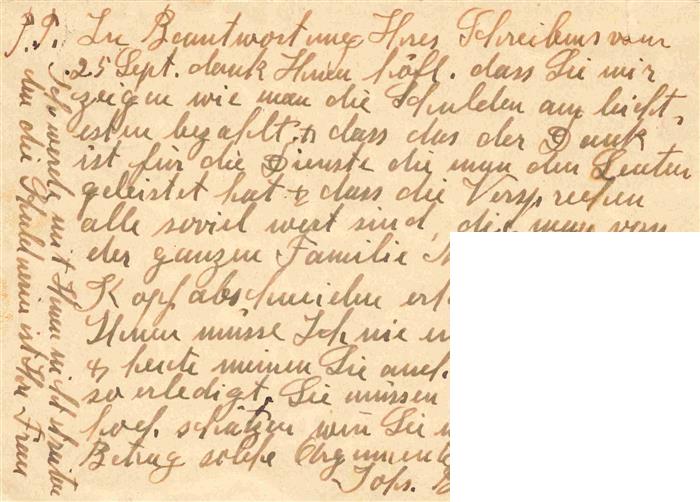 P.P. In Beantwortung Ihres Schreibens vom
25 Sept. dank Ihnen höfl. dass Sie mir
zeigen wie man die Schulden am leicht-
esten bezahlt. & dass das der Dank
ist für die Dienste die man den Leuten
geleistet hat & dass die Versprechen
alle soviel wert sind, die man von
der ganzen Familie
Kopfabschneiden
Ihnen müsse Ich nie
& heute meinen Sie auch
so erledigt, Sie müssen
hoch schätzen wen̄ Sie
Betrag solche Argumente
Johs.
Ich werde mit Ihnen nicht streiten
den die Schuldnerin ist Ihre Frau